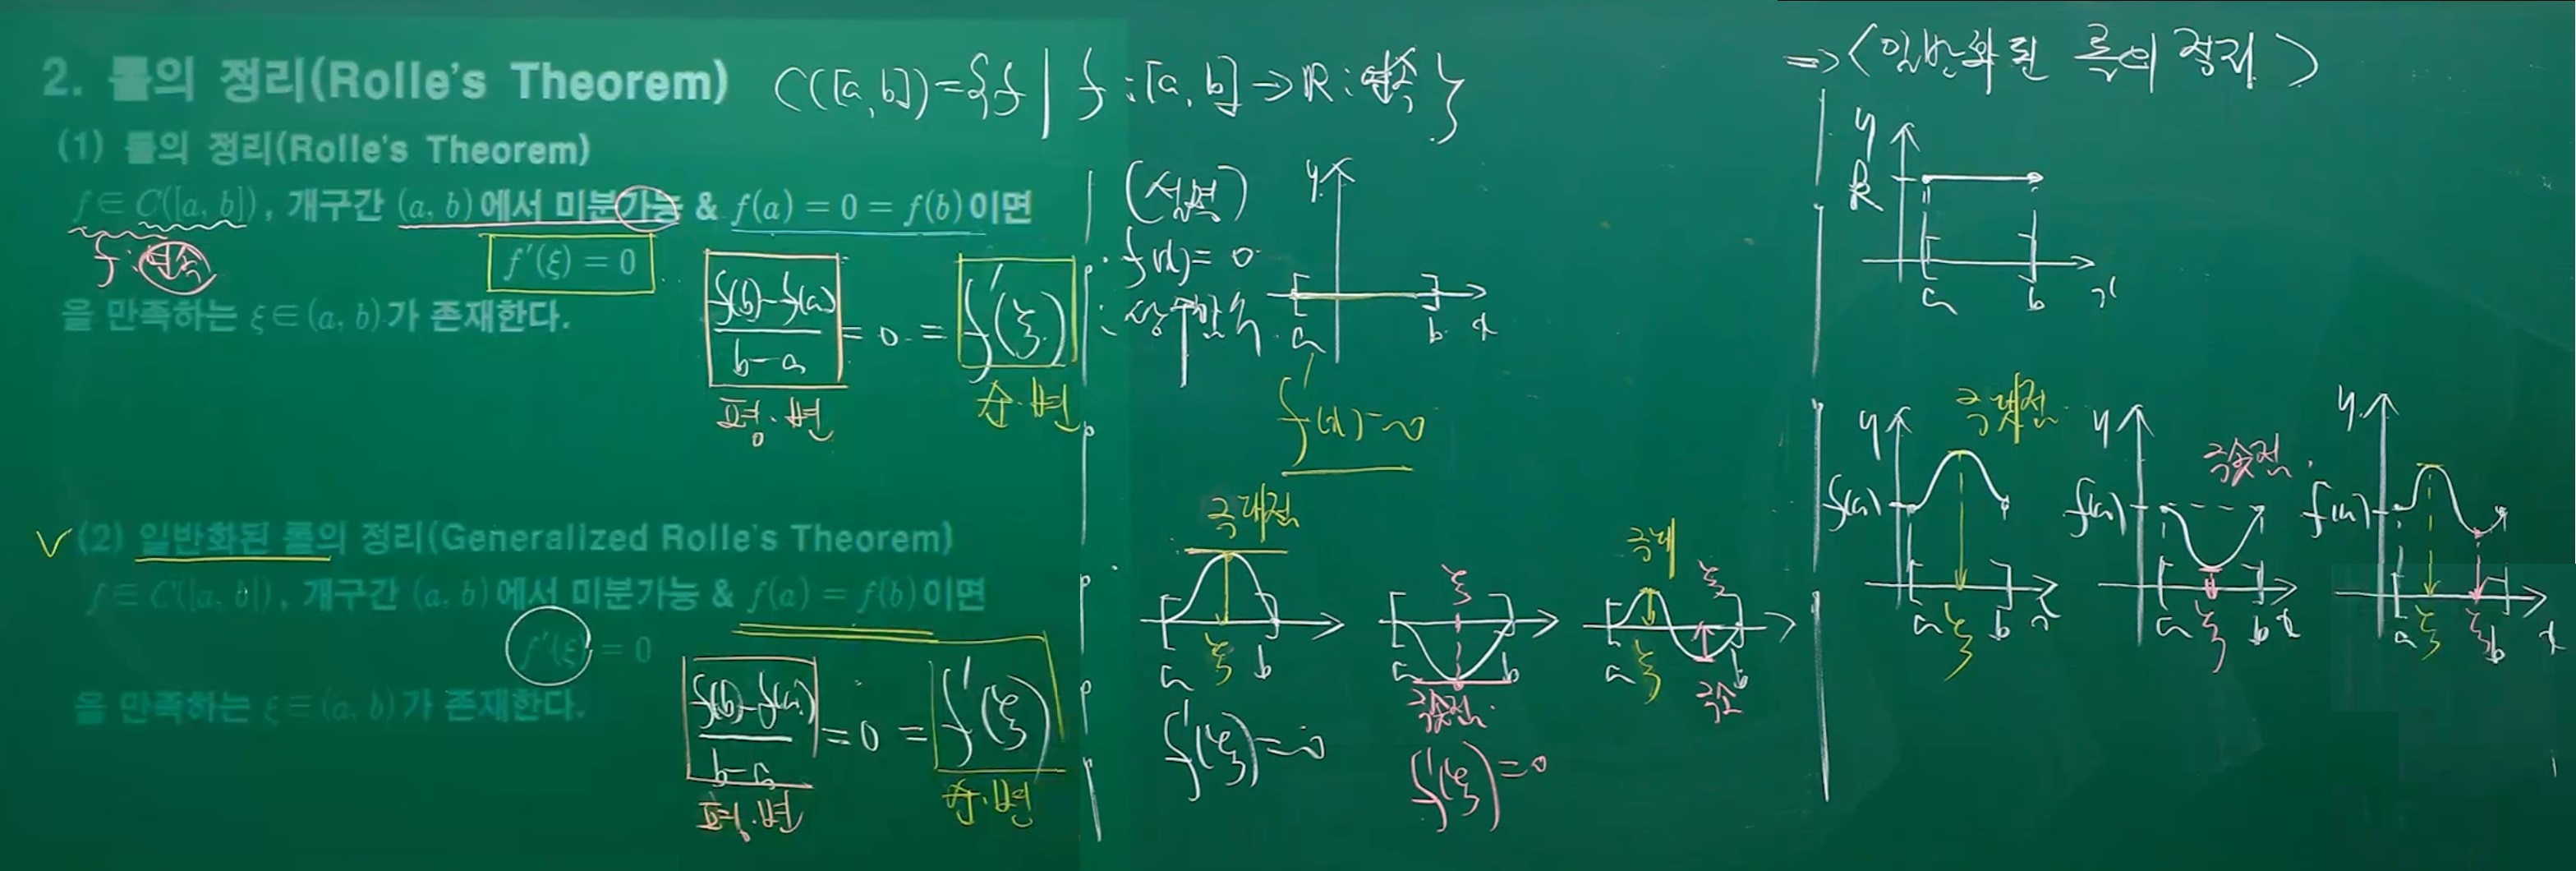 2. 롤의 정리(Rolle's Theorem)
C([a, b]) = {f | f : [a, b] → ℝ : 연속}
(1) 롤의 정리(Rolle's Theorem)
f ∈ C([a, b]), 개구간 (a, b)에서 미분가능 & f(a) = 0 = f(b)이면
f : 연속
f′(ξ) = 0
을 만족하는 ξ ∈ (a, b)가 존재한다.
f(b)-f(a) / b-a = 0 = f′(ξ)
평·변
순·변
(2) 일반화된 롤의 정리(Generalized Rolle's Theorem)
f ∈ C([a, b]), 개구간 (a, b)에서 미분가능 & f(a) = f(b)이면
f′(ξ) = 0
을 만족하는 ξ ∈ (a, b)가 존재한다.
f(b)-f(a) / b-a = 0 = f′(ξ)
평·변
순·변
(설명)
f(x) = 0
: 상수함수
y
a b x
f′(x) = 0
극대점
a ξ b
f′(ξ) = 0
ξ
a b
극솟점
f′(ξ) = 0
극대
ξ
a ξ b
극소
⇒ <일반화된 롤의 정리>
y
k
a b x
극댓점
y
f(a)
a ξ b x
극솟점
y
f(a)
a ξ b x
y
f(a)
a ξ ξ b x